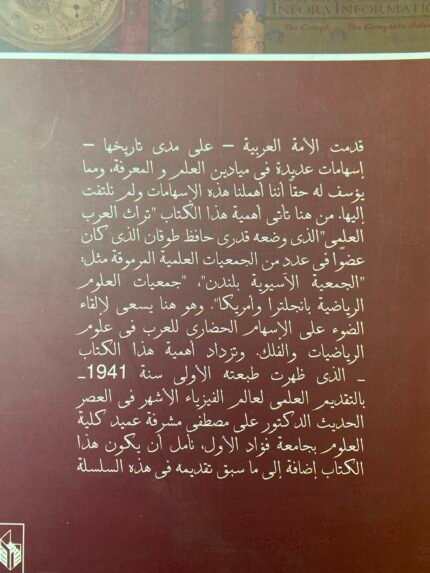 INFORM INFORMATION
The Comp The Complete
قدمت الأمة العربية – على مدى تاريخها –
إسهامات عديدة فى ميادين العلم و المعرفة، ومما
يؤسف له حقاً أننا أهملنا هذه الإسهامات ولم نلتفت
إليها. من هنا تأتى أهمية هذا الكتاب "تراث العرب
العلمى" الذى وضعه قدرى حافظ طوقان الذى كان
عضوًا فى عدد من الجمعيات العلمية المرموقة مثل:
"الجمعية الآسيوية بلندن"، "جمعيات العلوم
الرياضية بانجلترا وأمريكا". وهو هنا يسعى لإلقاء
الضوء على الإسهام الحضارى للعرب فى علوم
الرياضيات والفلك. وتزداد أهمية هذا الكتاب
ـ الذى ظهرت طبعته الأولى سنة 1941ـ
بالتقديم العلمى لعالم الفيزياء الأشهر فى العصر
الحديث الدكتور على مصطفى مشرفة عميد كلية
العلوم بجامعة فؤاد الأول، نأمل أن يكون هذا
الكتاب إضافة إلى ما سبق تقديمه فى هذه السلسلة